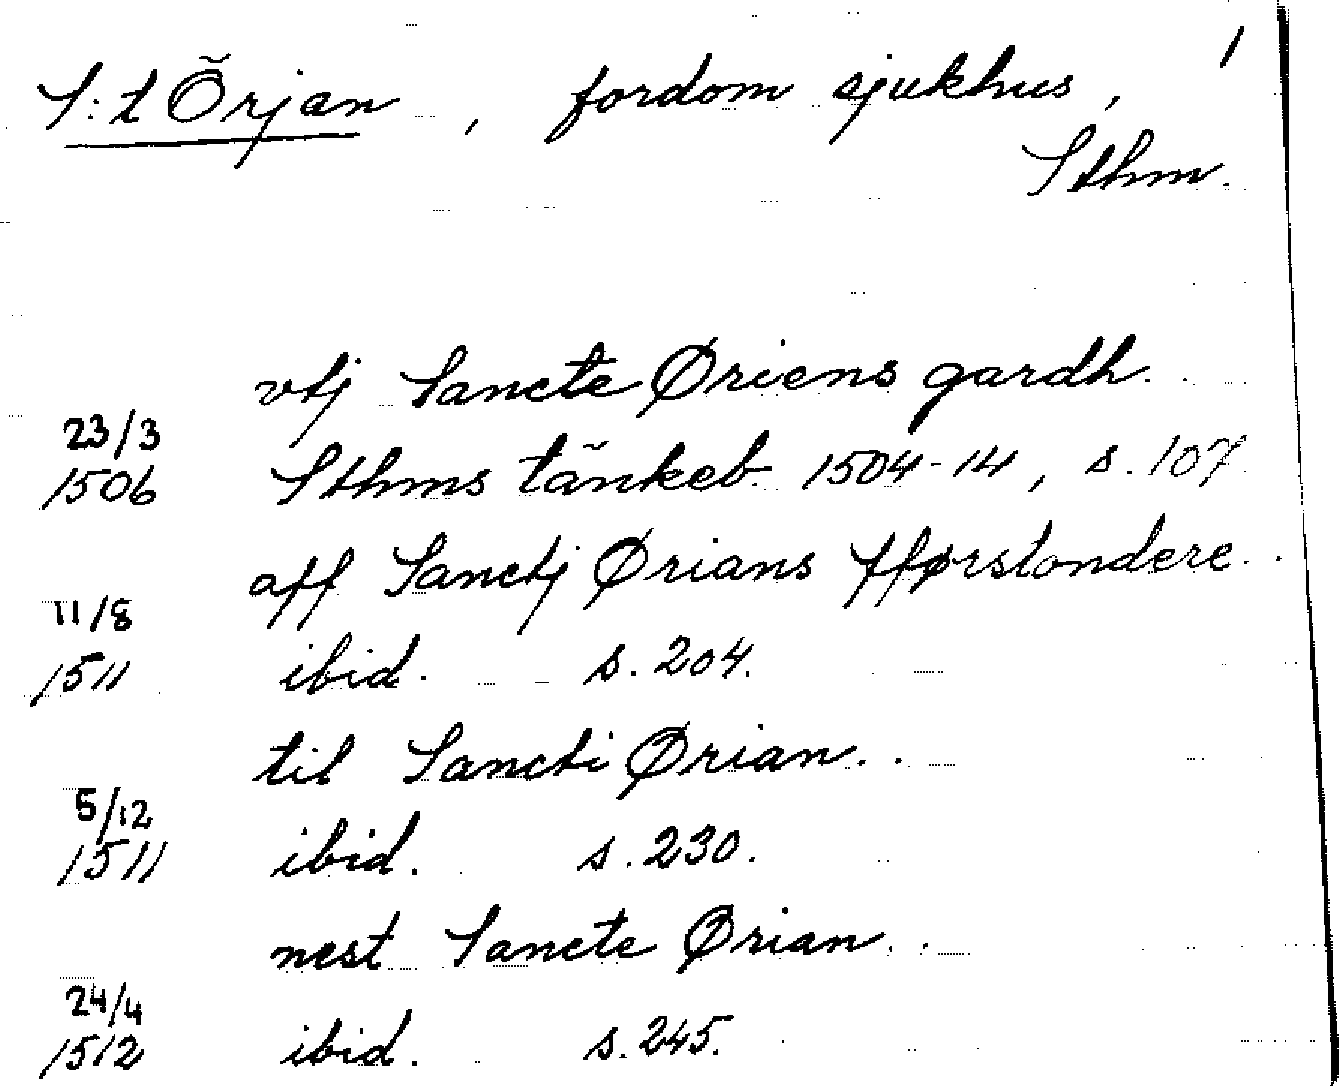 S:t Örjan, fordom sjukhus, 1
Sthm.
vtj Sancte Øriens gardh.
23/3
1506 Sthms tänkeb 1504-14, s. 107
aff Sanctj Ørians fførstondere.
11/8
1511 ibid. s. 204.
til Sancti Ørian.
5/12
1511 ibid. s. 230.
nest Sancte Ørian.
24/4
1512 ibid. s. 245.